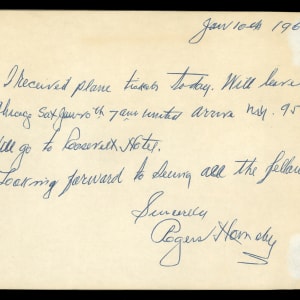 Jan 10th 196
I received plane tickets today. Will leave
Sat Jan 7 am United arrive N.Y. 95
go to Roosevelt Hotel.
Looking forward to seeing all the fellow
Sincerely
Rogers Hornsby